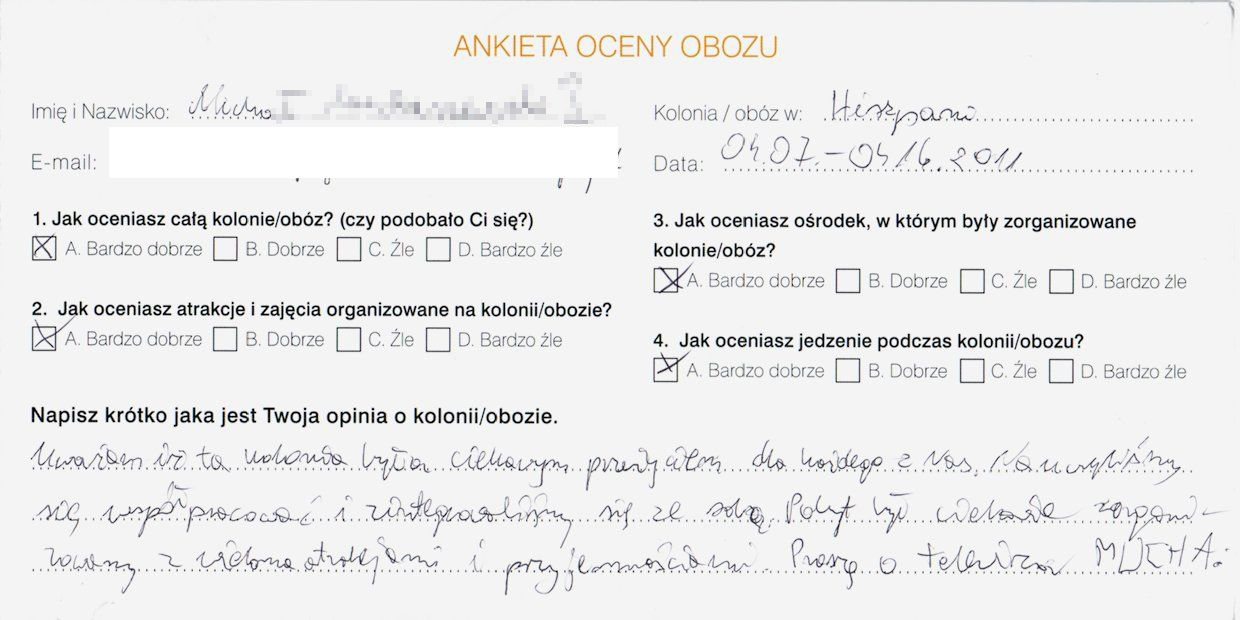 ANKIETA OCENY OBOZU
Imię i Nazwisko:
Kolonia / obóz w: Hiszpani
E-mail:
Data: 04.07.-0416.2011
1. Jak oceniasz całą kolonie/obóz? (czy podobało Ci się?)
A. Bardzo dobrze B. Dobrze C. Źle D. Bardzo źle
2. Jak oceniasz atrakcje i zajęcia organizowane na kolonii/obozie?
A. Bardzo dobrze B. Dobrze C. Źle D. Bardzo źle
3. Jak oceniasz ośrodek, w którym były zorganizowane
kolonie/obóz?
A. Bardzo dobrze B. Dobrze C. Źle D. Bardzo źle
4. Jak oceniasz jedzenie podczas kolonii/obozu?
A. Bardzo dobrze B. Dobrze C. Źle D. Bardzo źle
Napisz krótko jaka jest Twoja opinia o kolonii/obozie.
Uważam iż ta kolonia była ciekawym przeżyciem dla każdego z nas. Nauczyliśmy
się współpracować i zintegrowaliśmy się ze sobą. Pobyt był ciekawie zorgani-
zowany z wieloma atrakcjami i przyjemnościami. Proszę o MUCHA.